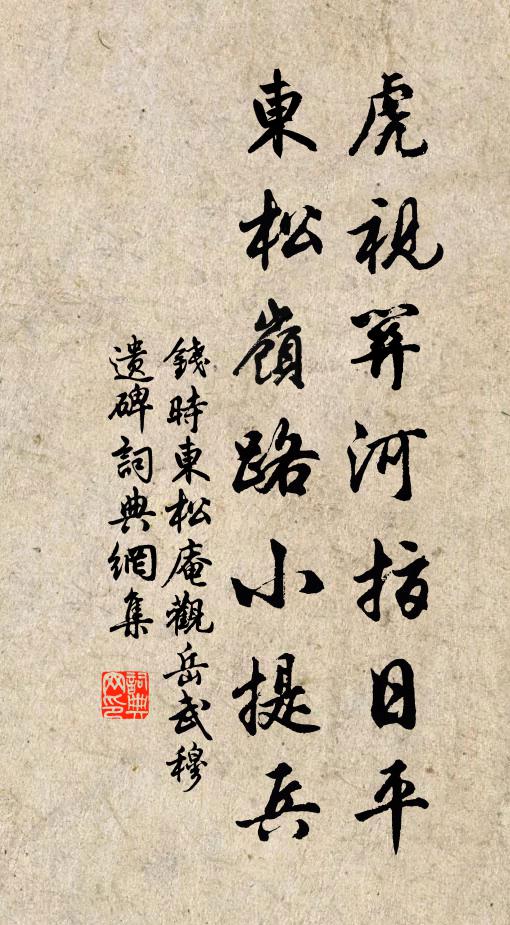 虎視關河指日平
東松嶺路小提兵
錢時東松庵觀岳武穆
遺碑詞典網集
詞典
网印